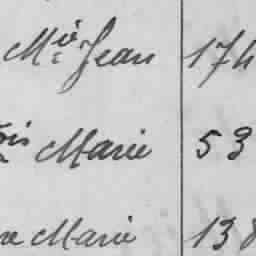 Mie Jean 174
ois Marie 53
re Marie 138